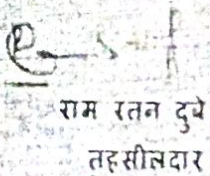 राम रतन दुबे
तहसीलदार